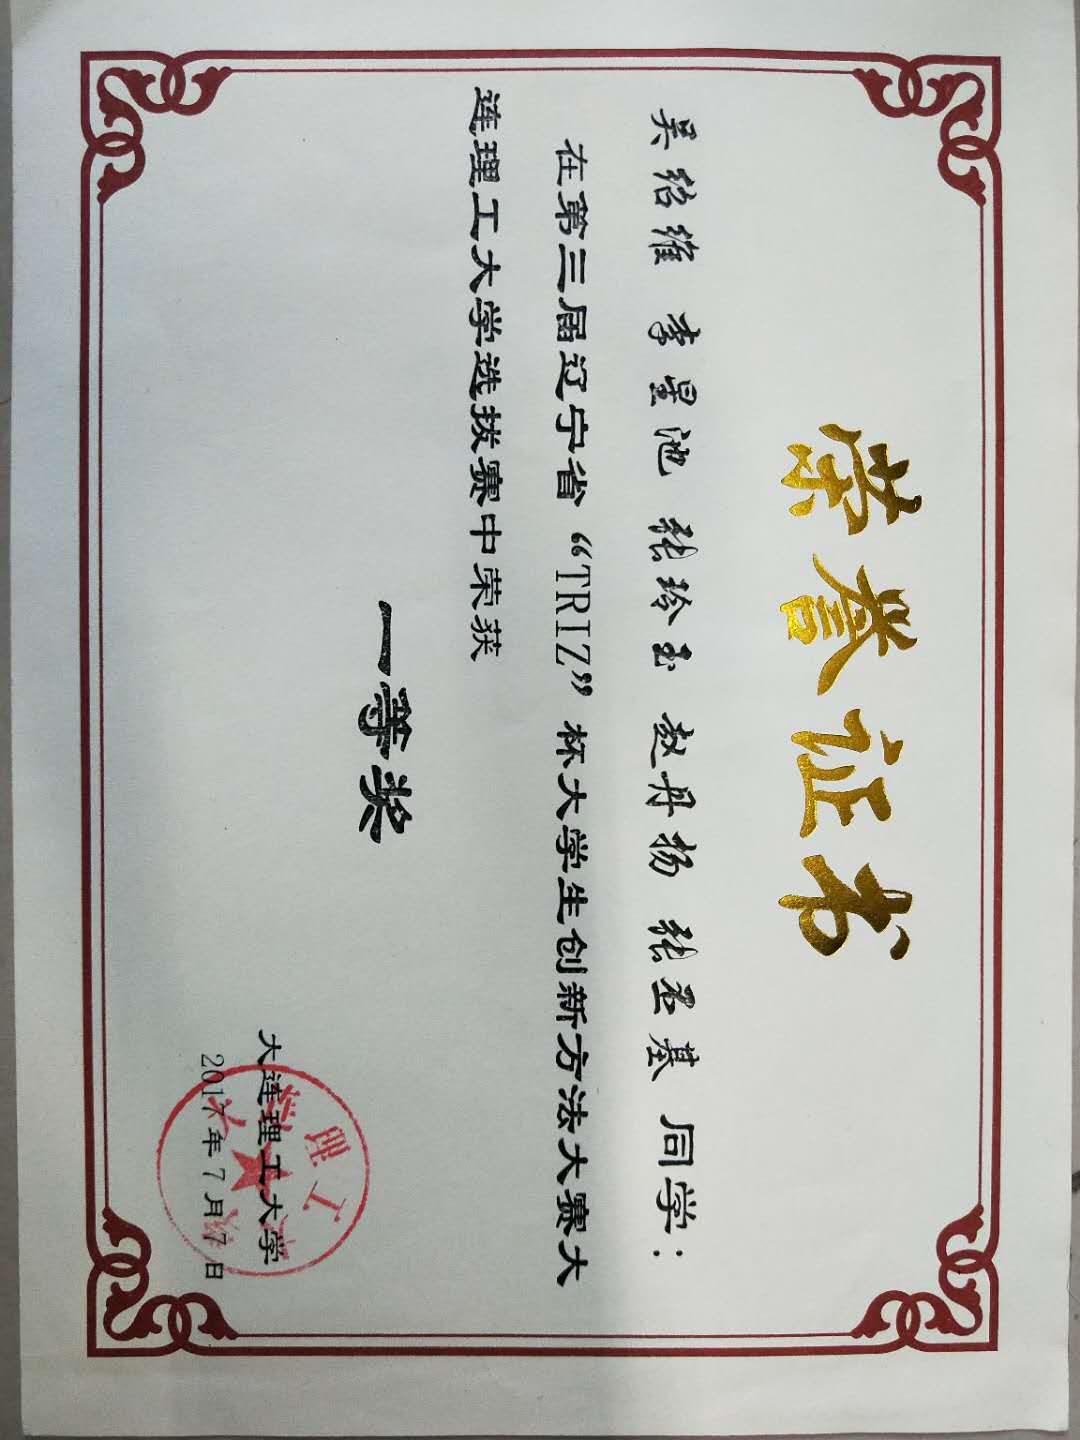 荣誉证书
吴绍维 李星池 张玲玉 赵丹扬 张丞基 同学：
在第三届辽宁省“TRIZ”杯大学生创新方法大赛大
连理工大学选拔赛中荣获
一等奖
大连理工大学
2017年7月7日